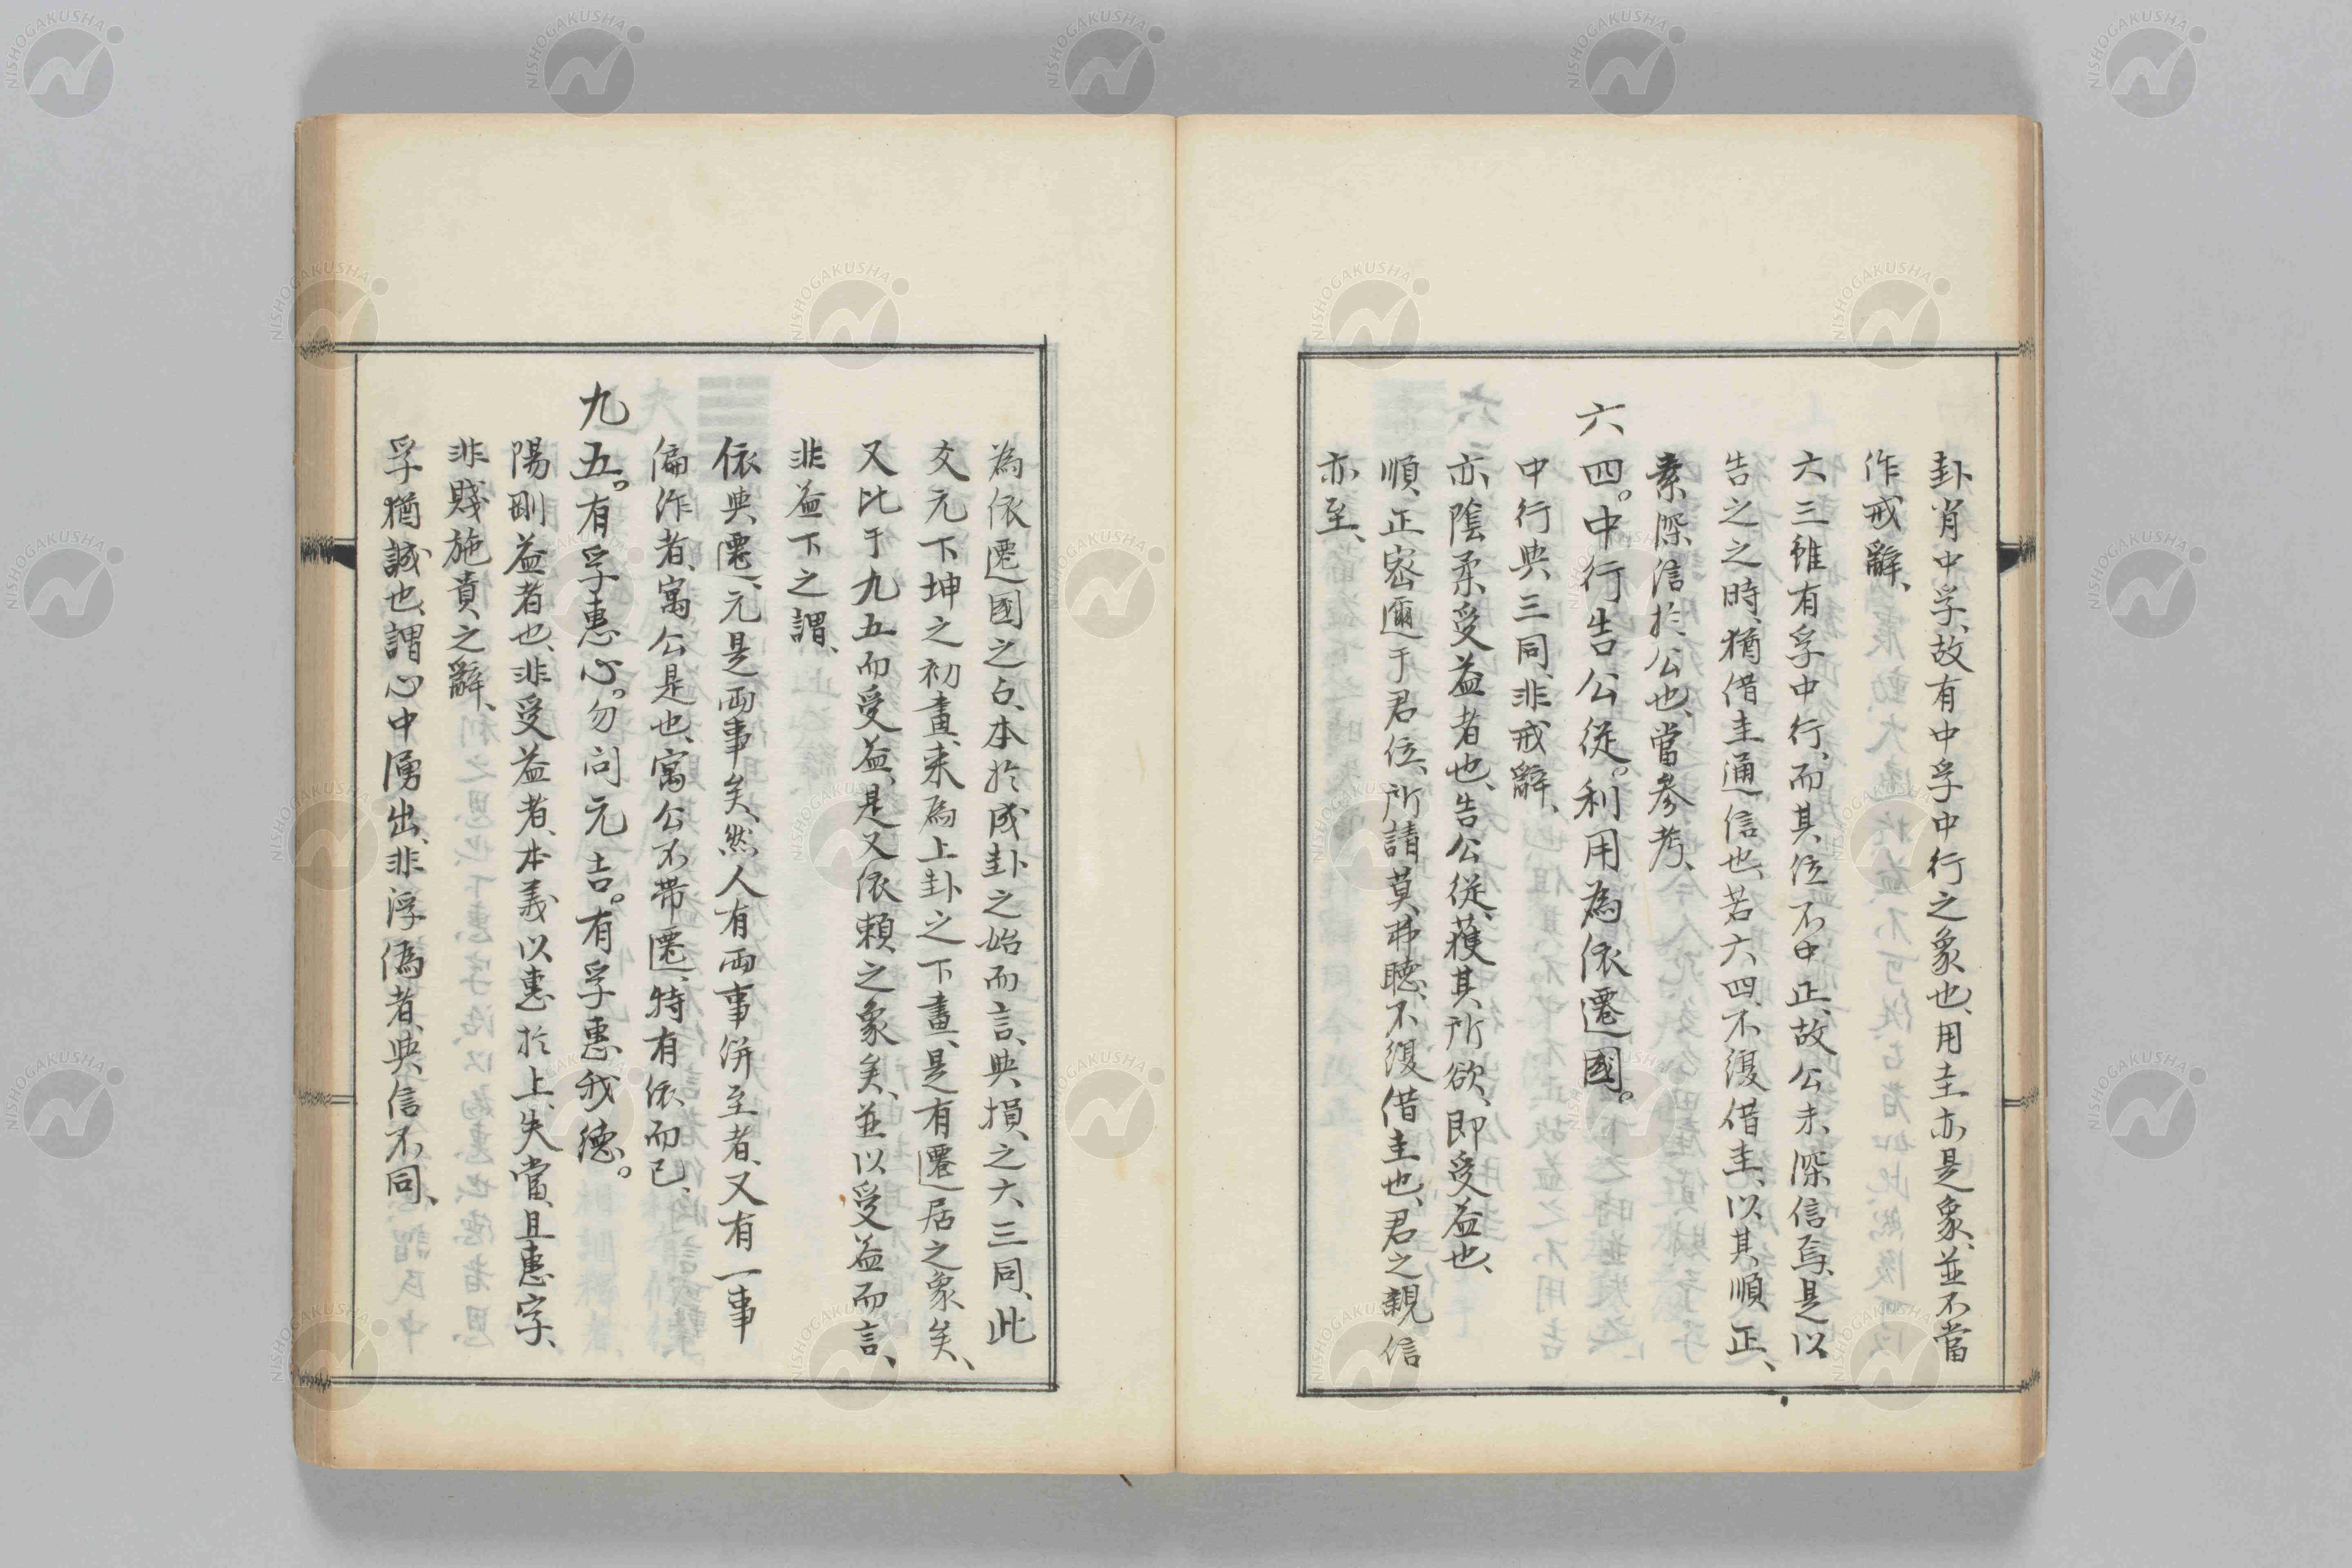 卦肖中孚、故有中孚中行之象也、用圭亦是象、並不當
作戒辭、
六三雖有孚中行、而其位不中正、故公未深信焉、是以
告之之時、猶借圭通信也、若六四、不復借圭、以其順正、
素深信於公也、當參考、
六四。中行告公從。利用為依遷國。
中行與三同、非戒辭、
亦陰柔受益者也、告公從、獲其所欲、即受益也、
順正密邇于君位、所請莫弗聽、不復借圭也、君之親信
亦至、
為依遷國之占、本於成卦之始而言、與損之六三同、此
爻元下坤之初畫、來為上卦之下畫、是有遷居之象矣、
又比于九五而受益、是又依賴之象矣、並以受益而言、
非益下之謂、
依與遷、元是兩事矣、然人有兩事併至者、又有一事
偏作者、寓公是也、寓公不帶遷、特有依而已、
九五。有孚惠心。勿問元吉。有孚惠我德。
陽剛益者也、非受益者、本義以惠於上、失當、且惠字、
非賤施貴之辭、
孚猶誠也、謂心中湧出、非浮偽者、與信不同、